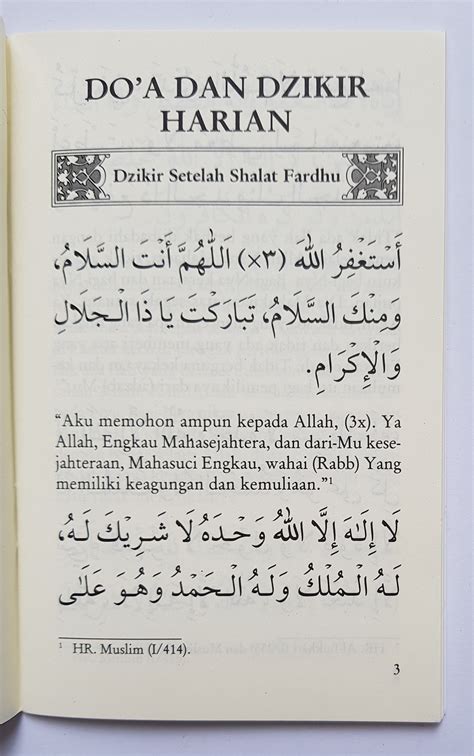 DO'A DAN DZIKIR
HARIAN
Dzikir Setelah Shalat Fardhu
أَسْتَغْفِرُ اللهَ (٣×) اَللَّهُمَّ أَنْتَ السَّلَامُ،
وَمِنْكَ السَّلَامُ، تَبَارَكْتَ يَا ذَا الْجَلَالِ
وَالْإِكْرَامِ.
“Aku memohon ampun kepada Allah, (3x). Ya
Allah, Engkau Mahasejahtera, dan dari-Mu kese-
jahteraan, Mahasuci Engkau, wahai (Rabb) Yang
memiliki keagungan dan kemuliaan.”¹
لَا إِلَهَ إِلَّا اللهُ وَحْدَهُ لَا شَرِيْكَ لَهُ،
لَهُ الْمُلْكُ وَلَهُ الْحَمْدُ وَهُوَ عَلَى
¹ HR. Muslim (I/414).
3